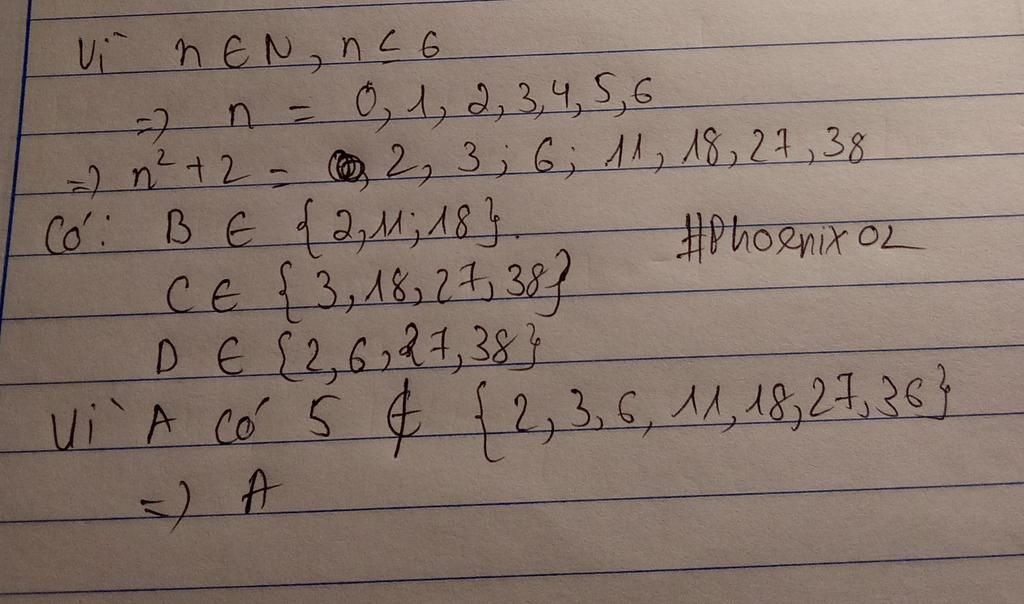 Vì n ∈ N, n ≤ 6
=> n = 0, 1, 2, 3, 4, 5, 6
=> n² + 2 = 2, 3; 6; 11, 18, 27, 38
Có: B ∈ {2, 11; 18}. #Phoenix02
C ∈ {3, 18, 27, 38}
D ∈ {2, 6, 27, 38}
Vì A có 5 ∉ {2, 3, 6, 11, 18, 27, 36}
=> A